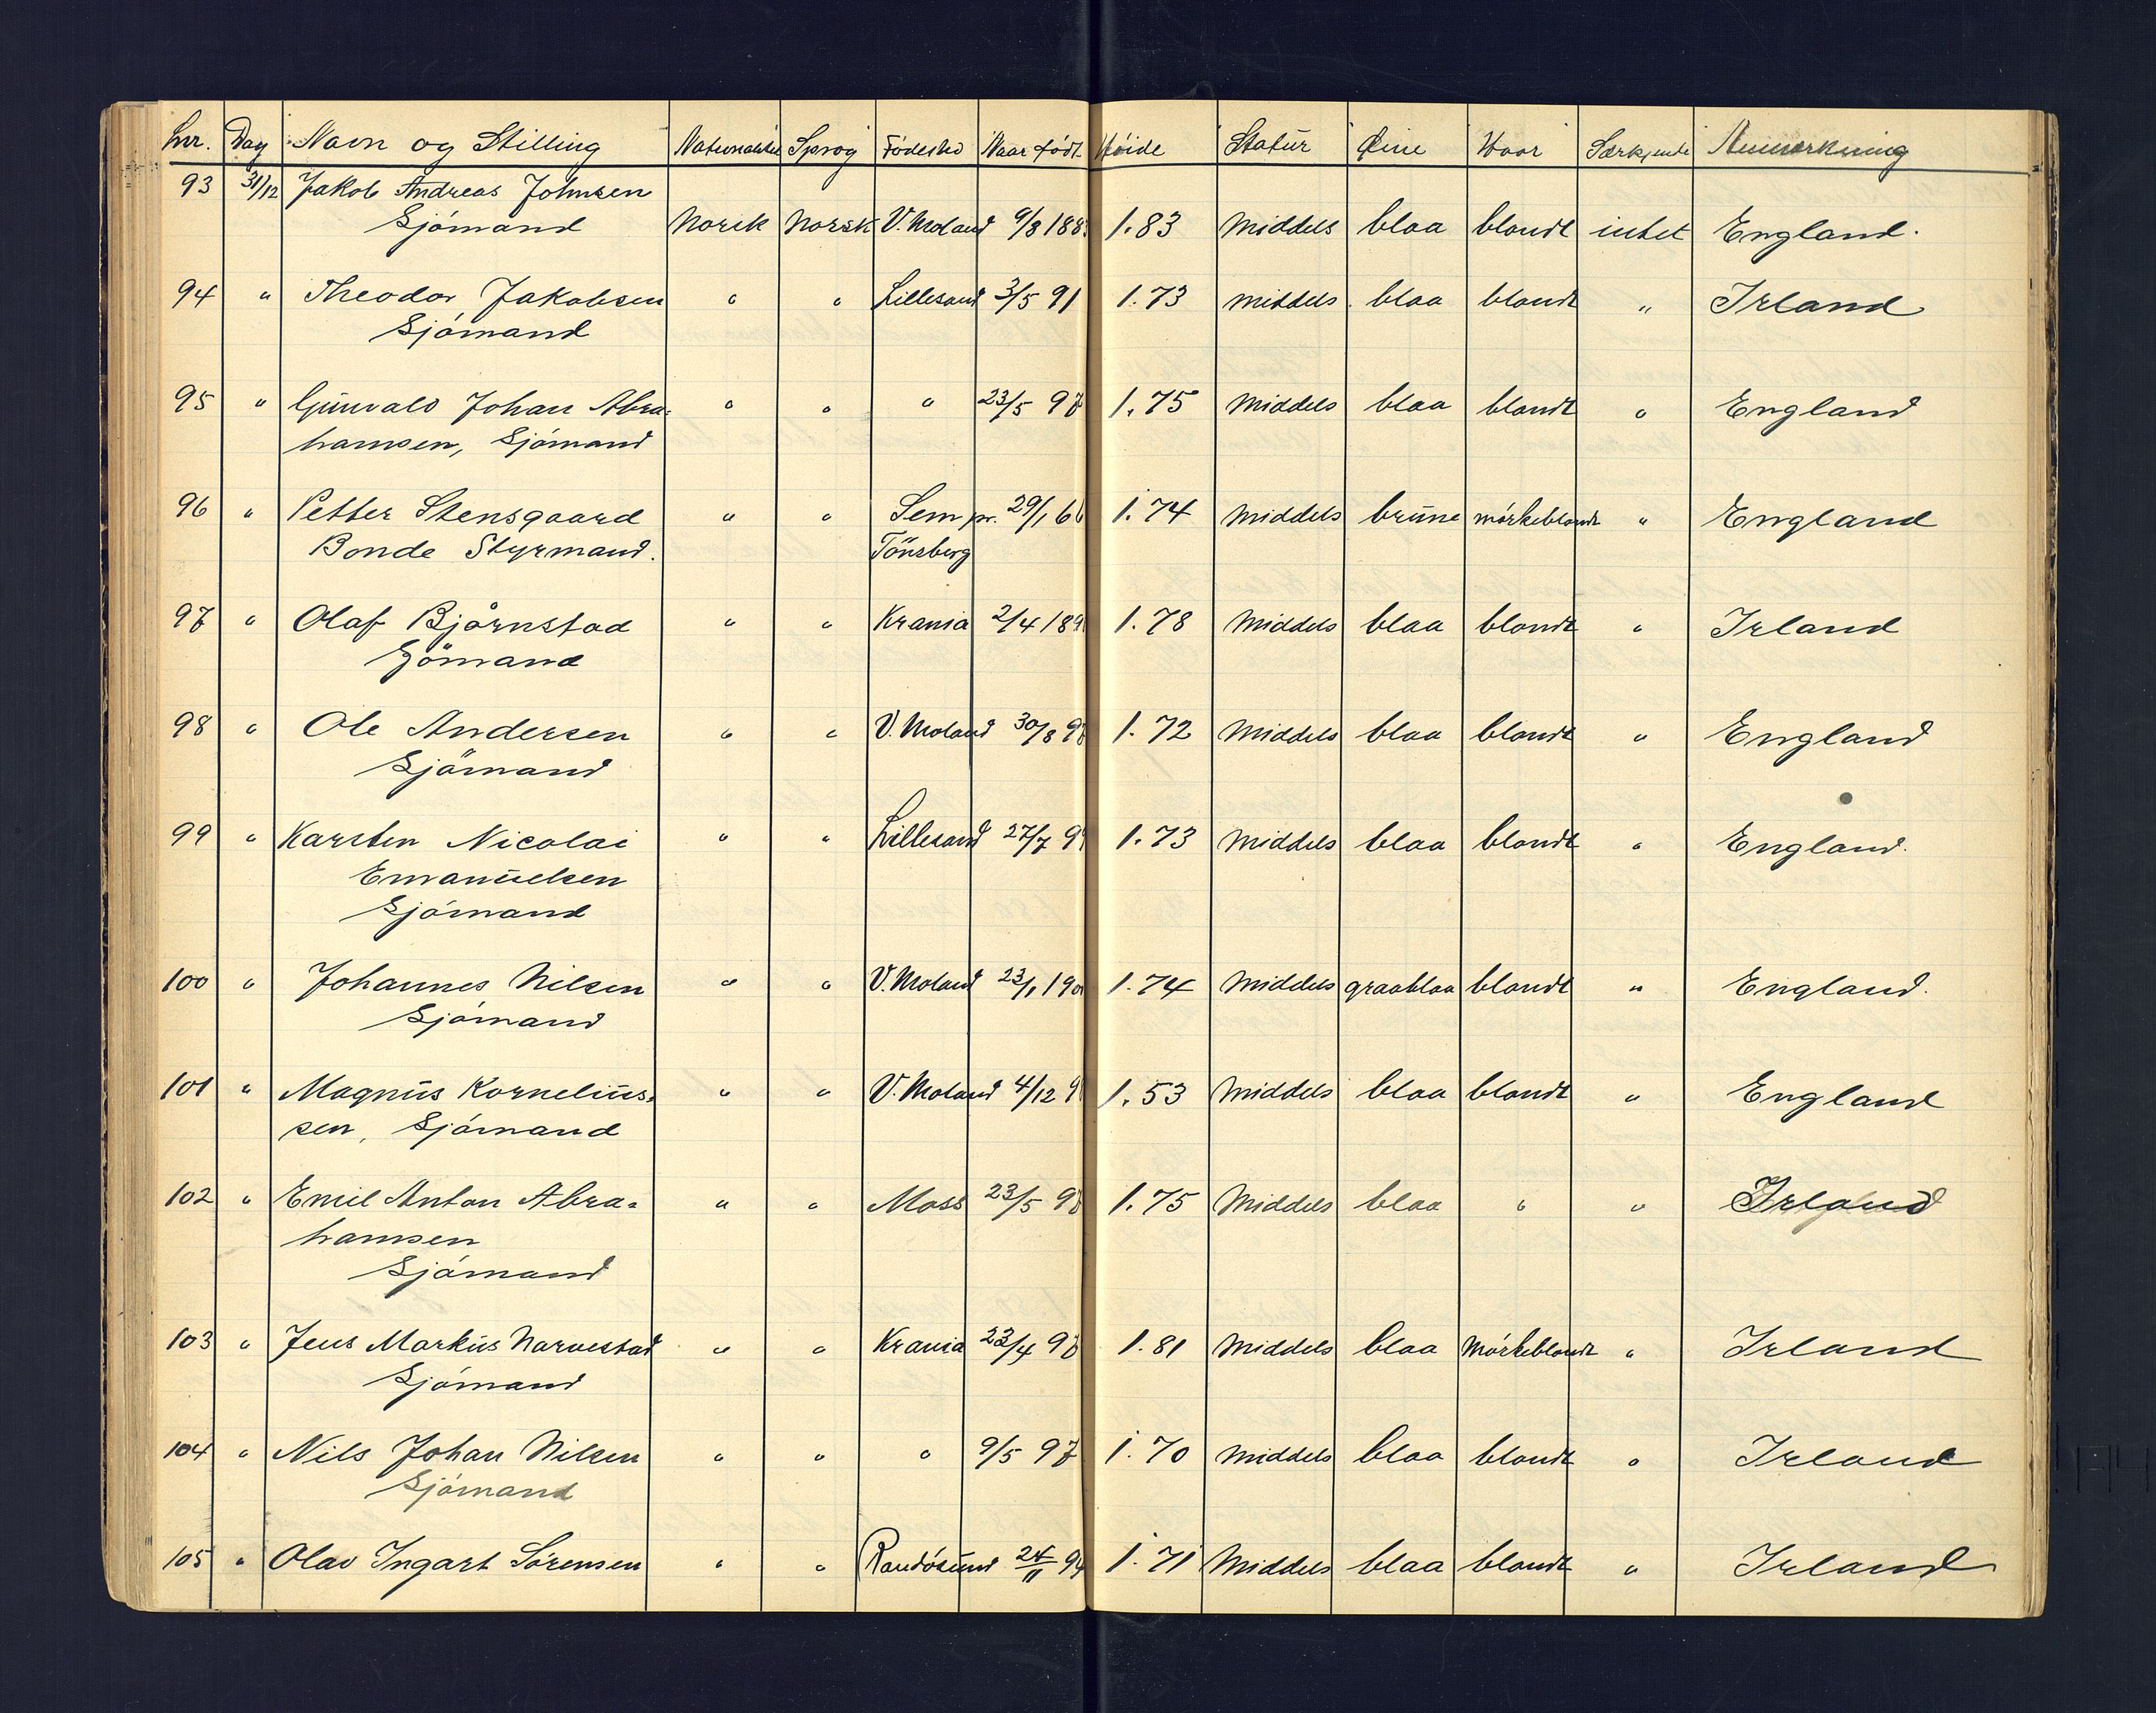 Lnr. Dag Navn og Stilling Nationalitet Sprog Födested Naar födt Höide Statur Öine Haar Særkjende Anmerkning
93 31/12 Jakob Andreas Johnsen
Sjömand Norsk Norsk V. Moland 9/8 188 1.83 Middels blaa blondt intet England.
94 " Theodor Jakobsen " " Lillesand 3/5 91 1.73 middels blaa blondt " Irland
Sjömand
95 " Gunvald Johan Abra= " " " 23/5 97 1.75 Middels blaa blondt " England
hamsen, Sjömand
96 " Petter Stensgaard " " Sem pr. 29/1 6 1.74 Middels brune mörkeblondt " England
Bonde Styrmand. Tönsberg
97 " Olaf Björnstad " " Krania 2/4 189 1.78 Middels blaa blondt " Irland
Sjömand
98 " Ole Andersen " " V. Moland 30/8 9 1.72 Middels blaa blondt " England
Sjömand
99 " Karsten Nicolai " " Lillesand 27/7 9 1.73 Middels blaa blondt " England.
Emanuelsen
Sjömand
100 " Johannes Nilsen " " V. Moland 23/1 190 1.74 Middels graablaa blondt " England.
Sjömand
101 " Magnus Kornelius= " " V. Moland 4/12 9 1.53 Middels blaa blondt " England
sen, Sjömand
102 " Emil Anton Abra= " " Moss 23/5 98 1.75 Middels blaa " " Irland
hamsen
Sjömand
103 " Jens Markus Narvestad " " Krania 23/4 97 1.81 Middels blaa Mörkeblondt " Irland
Sjömand
104 " Nils Johan Nilsen " " " 9/5 97 1.70 Middels blaa blondt " Irland
Sjömand
105 " Olav Ingart Sörensen " " Randösund 24/11 94 1.71 Middels blaa blondt " Irland